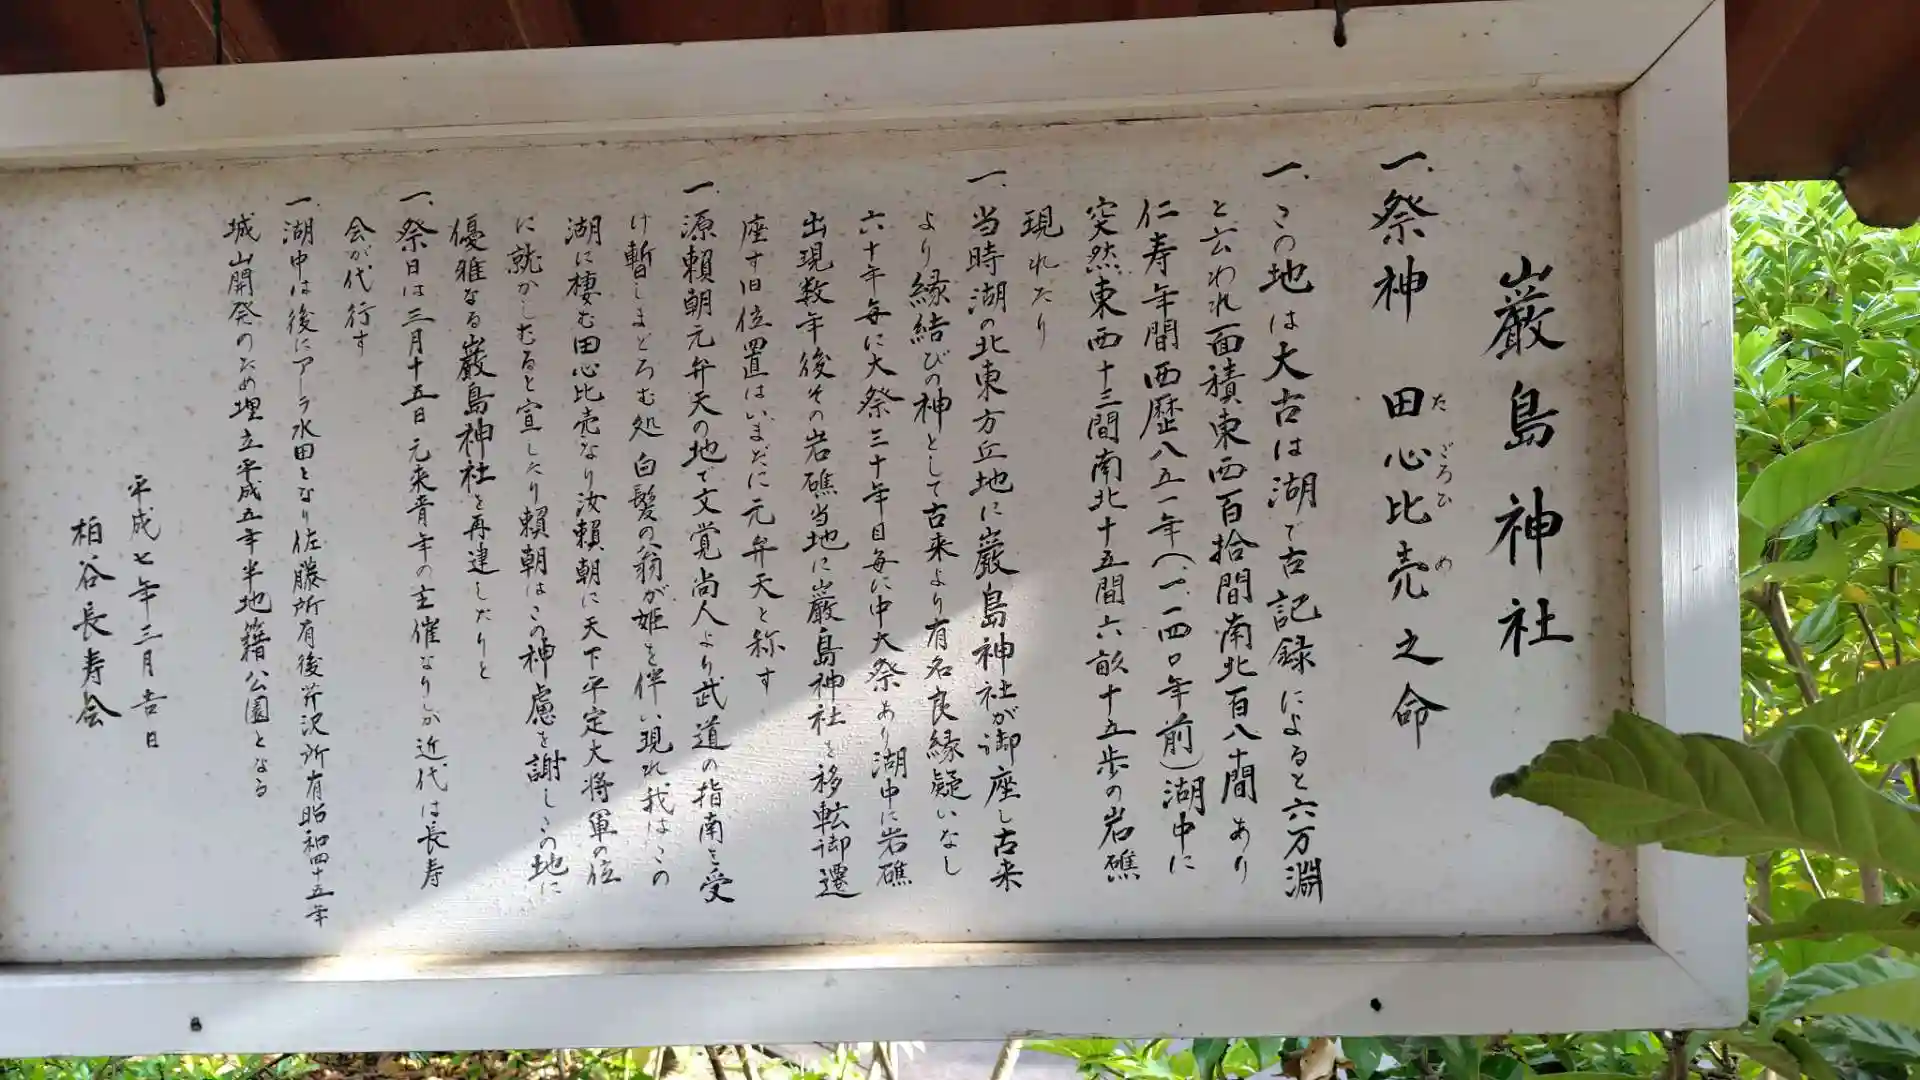 巌島神社
一、祭神 田心比売之命
たごろひめ
一、この地は大古は湖で古記録によると六万淵
と云われ面積東西百拾間南北百八十間あり
仁寿年間西歴八五一年(一一四〇年前)湖中に
突然東西十三間南北十五間六畝十五歩の岩礁
現れたり
一、当時湖の北東方丘地に巌島神社が御座し古来
より縁結びの神として古来より有名良縁疑いなし
六十年毎に大祭三十年目毎に中大祭あり湖中に岩礁
出現数年後その岩礁当地に巌島神社を移転御遷
座す旧位置はいまだに元弁天と称す
一、源頼朝元弁天の地で文覚尚人より武道の指南を受
け暫しまどろむ処白髪の翁が姫を伴い現れ我はこの
湖に棲む田心比売なり汝頼朝に天下平定大将軍の位
に就かしむると宣したり頼朝はこの神慮を謝しこの地に
優雅なる巌島神社を再建したりと
一、祭日は三月十五日元来青年の主催なりしが近代は長寿
会が代行す
一、湖中は後にアーラ水田となり佐藤所有後芹沢所有昭和四十五年
城山開発のため埋立平成五年半地籍公園となる
平成七年三月吉日
柏谷長寿会